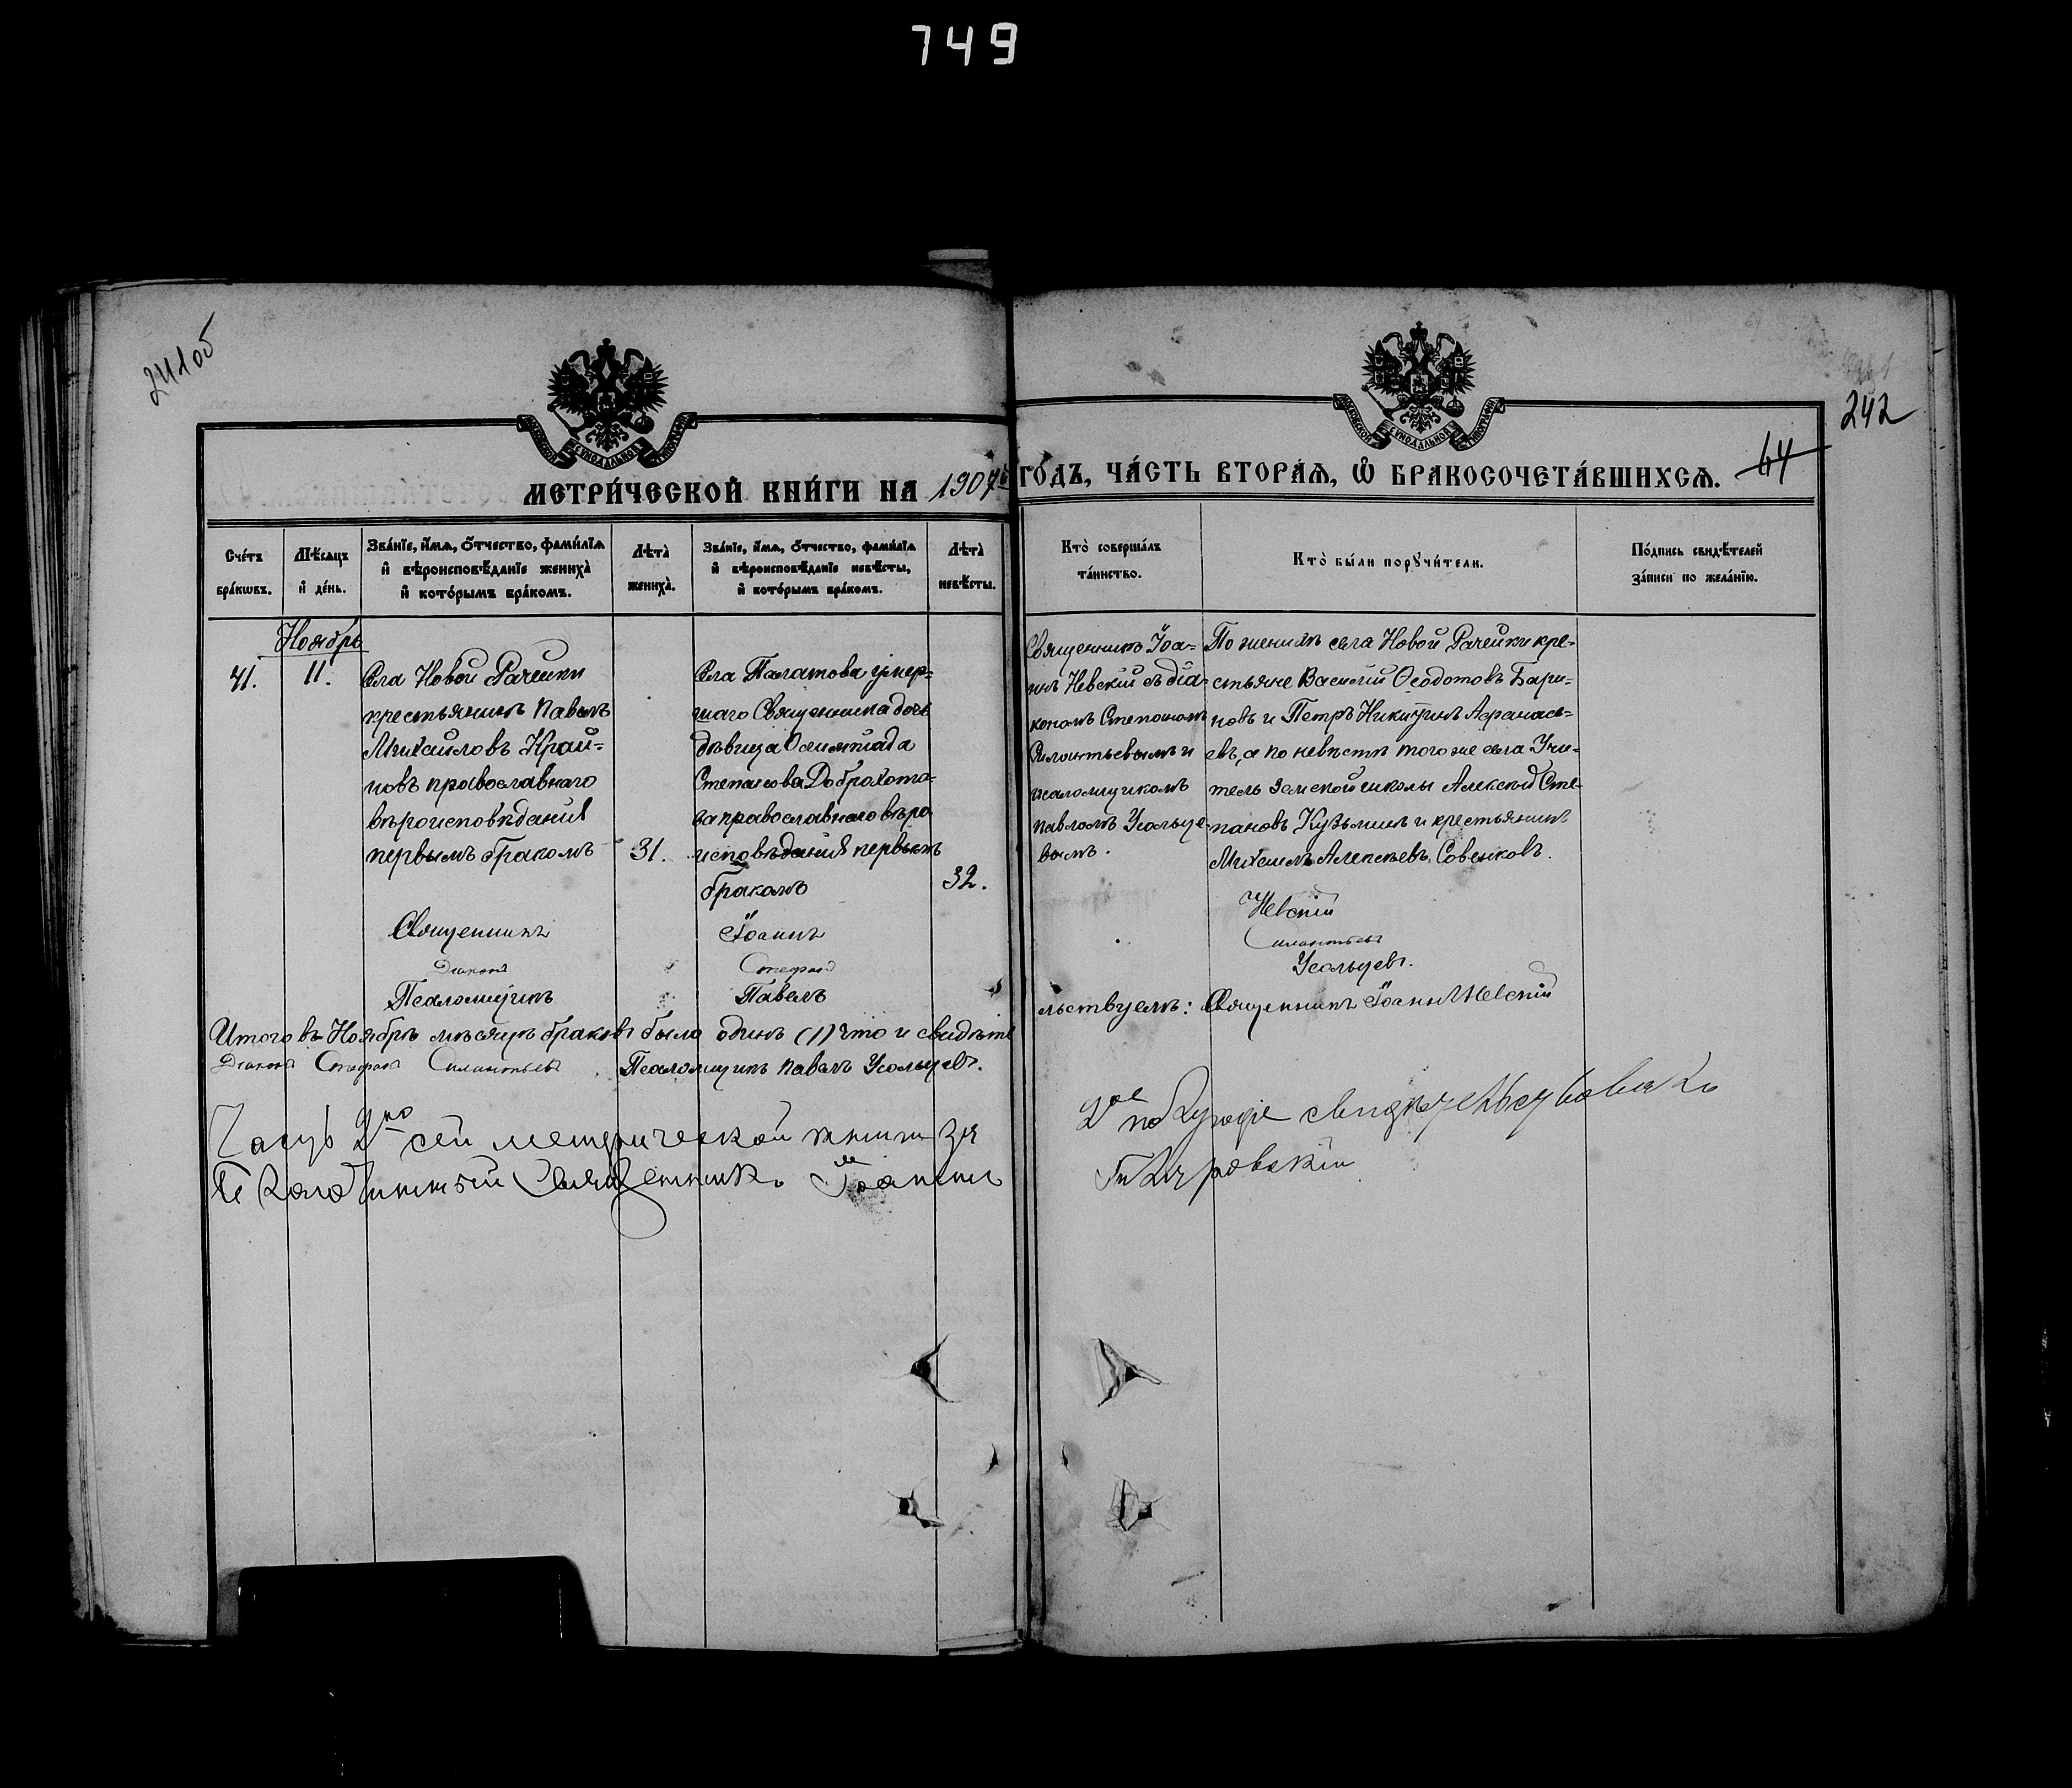 749
241об
242
64
МЕТРИ́ЧЕСКОЙ КНИ́ГИ НА 1907й
ГО́ДЪ, ЧА́СТЬ ВТОРА́Я, Ѿ БРАКОСОЧЕТА́ВШИХСЯ.
Сче́тъ бра́кѡвъ.
Мѣ́сяцъ и҆ де́нь.
Зва́нїе, и҆́мя, о҆́тчество, фами́лїя
и҆ вѣроисповѣ́данїе жениха̀
и҆ кото́рымъ бра́комъ.
Лѣта̀ жениха̀.
Зва́нїе, и҆́мя, о҆́тчество, фами́лїя
и҆ вѣроисповѣ́данїе невѣ́сты,
и҆ кото́рымъ бра́комъ.
Лѣта̀ невѣ́сты.
Кто̀ соверша́лъ
та́инство.
Кто̀ бы́ли порꙋчи́тели.
По́дпись свидѣ́телей
за́писи по жела́нїю.
Ноябрь
41.
11.
Села Новой Рачейки
крестьянинъ Павелъ
Михаиловъ Край=
новъ православнаго
вѣроисповѣданія
первымъ бракомъ
31.
Села Палатова умер=
шаго Священника дочь
дѣвица Олимпіада
Степанова Доброхото=
ва православнаго вѣро
исповѣданія первымъ
бракомъ
32.
Священникъ Іоа=
ннъ Невскій съ діа=
кономъ Стефаномъ
Силантьевымъ и
псаломщикомъ
Павломъ Усольце=
вымъ.
По женихѣ села Новой Рачейки кре=
стьяне Василій Ѳеодотовъ Бари=
новъ и Петръ Никитинъ Афанась=
евъ, а по невѣстѣ того же села Учи=
тель земской школы Алексѣй Сте=
пановъ Кузьминъ и крестьянинъ
Михаилъ Алексѣевъ Совенковъ.
Священникъ Іоаннъ Невскій
Діаконъ Стефанъ Силантьевъ
Псаломщикъ Павелъ Усольцевъ.
Итого въ Ноябрѣ мѣсяцѣ браковъ было одинъ (1) что и свидѣте
льствуемъ: Священникъ Іоаннъ Невскій
Діаконъ Стефанъ Силантьевъ Псаломщикъ Павелъ Усольцевъ.
Часть 2ую сей метрической книги за
2ое полугодіе свидѣтельствовалъ
Священникъ Іоаннъ